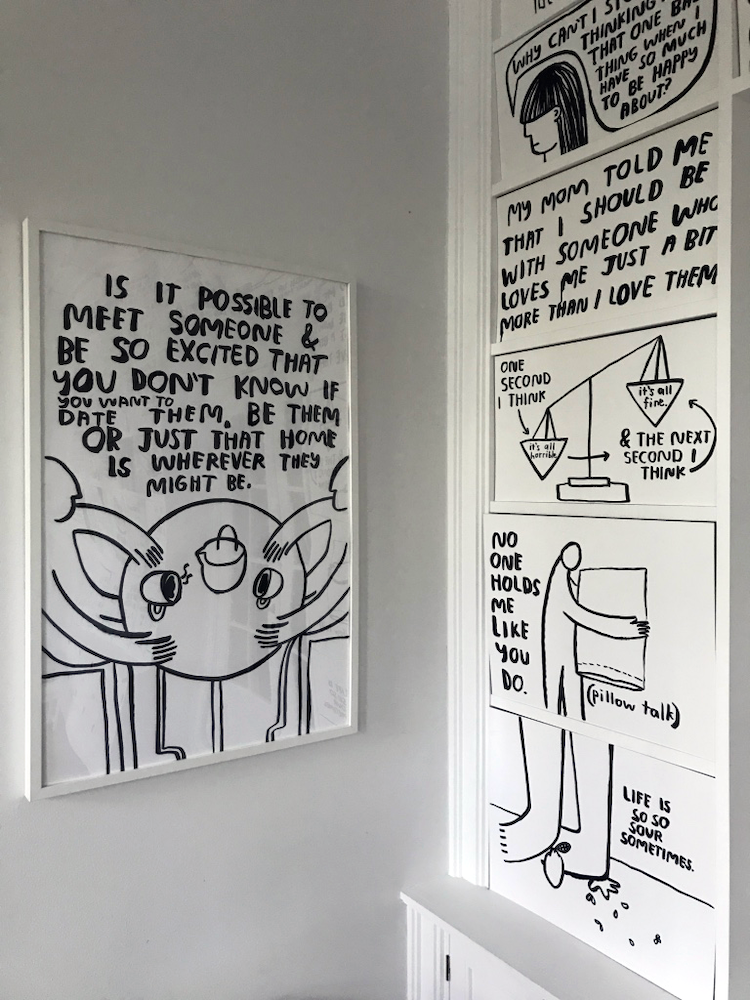 IS IT POSSIBLE TO
MEET SOMEONE &
BE SO EXCITED THAT
YOU DON'T KNOW IF
YOU WANT TO
DATE THEM, BE THEM
OR JUST THAT HOME
IS WHEREVER THEY
MIGHT BE.
WHY CAN'T I
THINKING
THAT ONE
THING WHEN I
HAVE SO MUCH
TO BE HAPPY
ABOUT?
MY MOM TOLD ME
THAT I SHOULD BE
WITH SOMEONE WHO
LOVES ME JUST A BIT
MORE THAN I LOVE THEM
ONE
SECOND
I THINK
it's all
horrible
it's all
fine.
& THE NEXT
SECOND I
THINK
NO
ONE
HOLDS
ME
LIKE
YOU
DO.
(pillow talk)
LIFE IS
SO SO
SOUR
SOMETIMES.